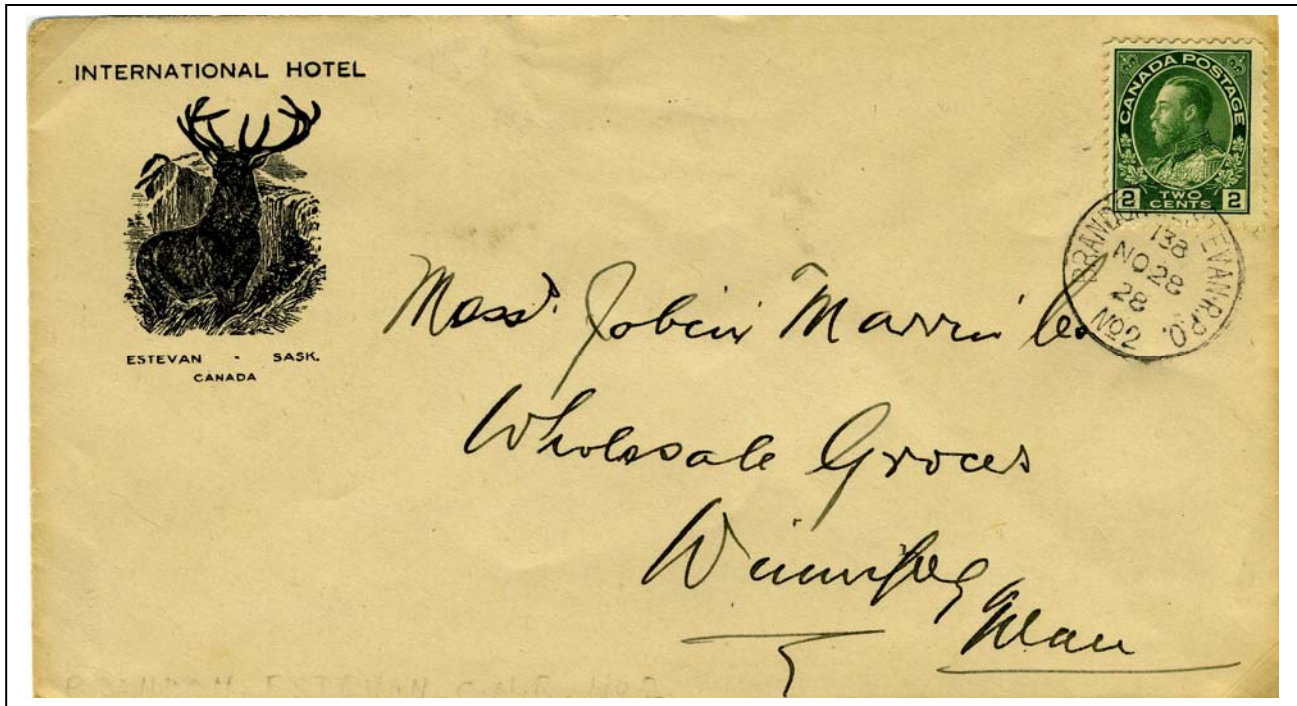 INTERNATIONAL HOTEL
ESTEVAN - SASK.
CANADA
CANADA POSTAGE
2 TWO CENTS 2
BRANDON & ESTEVAN. R.P.O.
138
NO 28
28
No2
Mess. Jobin Marrin Co
Wholesale Grocers
Winnipeg
Man